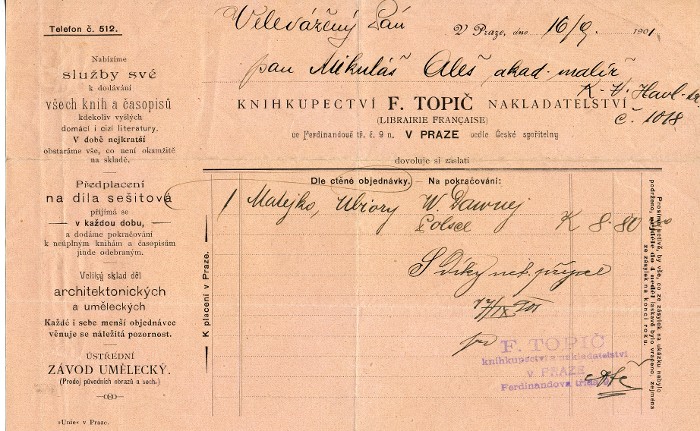 Telefon č. 512.
Nabízíme
služby své
k dodávání
všech knih a časopisů
kdekoliv vyšlých
domácí i cizí literatury.
V době nejkratší
obstaráme vše, co není okamžitě
na skladě.
Předplacení
na díla sešitová
přijímá se
v každou dobu,
a dodáme pokračování
k neúplným knihám a časopisům
jinde odebraným.
Veliký sklad děl
architektonických
a uměleckých
Každé i sebe menší objednávce
věnuje se náležitá pozornost.
ÚSTŘEDNÍ
ZÁVOD UMĚLECKÝ.
(Prodej původních obrazů a soch.)
»Unie« v Praze.
Velevážený Pán
V Praze, dne 16/9. 1901
pan Mikuláš Aleš akad. malíř
KNIHKUPECTVÍ F. TOPIČ NAKLADATELSTVÍ
č. 1018
(LIBRAIRIE FRANÇAISE)
ve Ferdinandově tř. č. 9 n. V PRAZE vedle České spořitelny
dovoluje si zaslati
Dle ctěné objednávky. – Na pokračování:
K placení v Praze.
1 Matejko, Ubiory W Dawnej
Polsce K 8.80
S díky
F. TOPIČ
knihkupectví a nakladatelství
V PRAZE
Ferdinandova třída